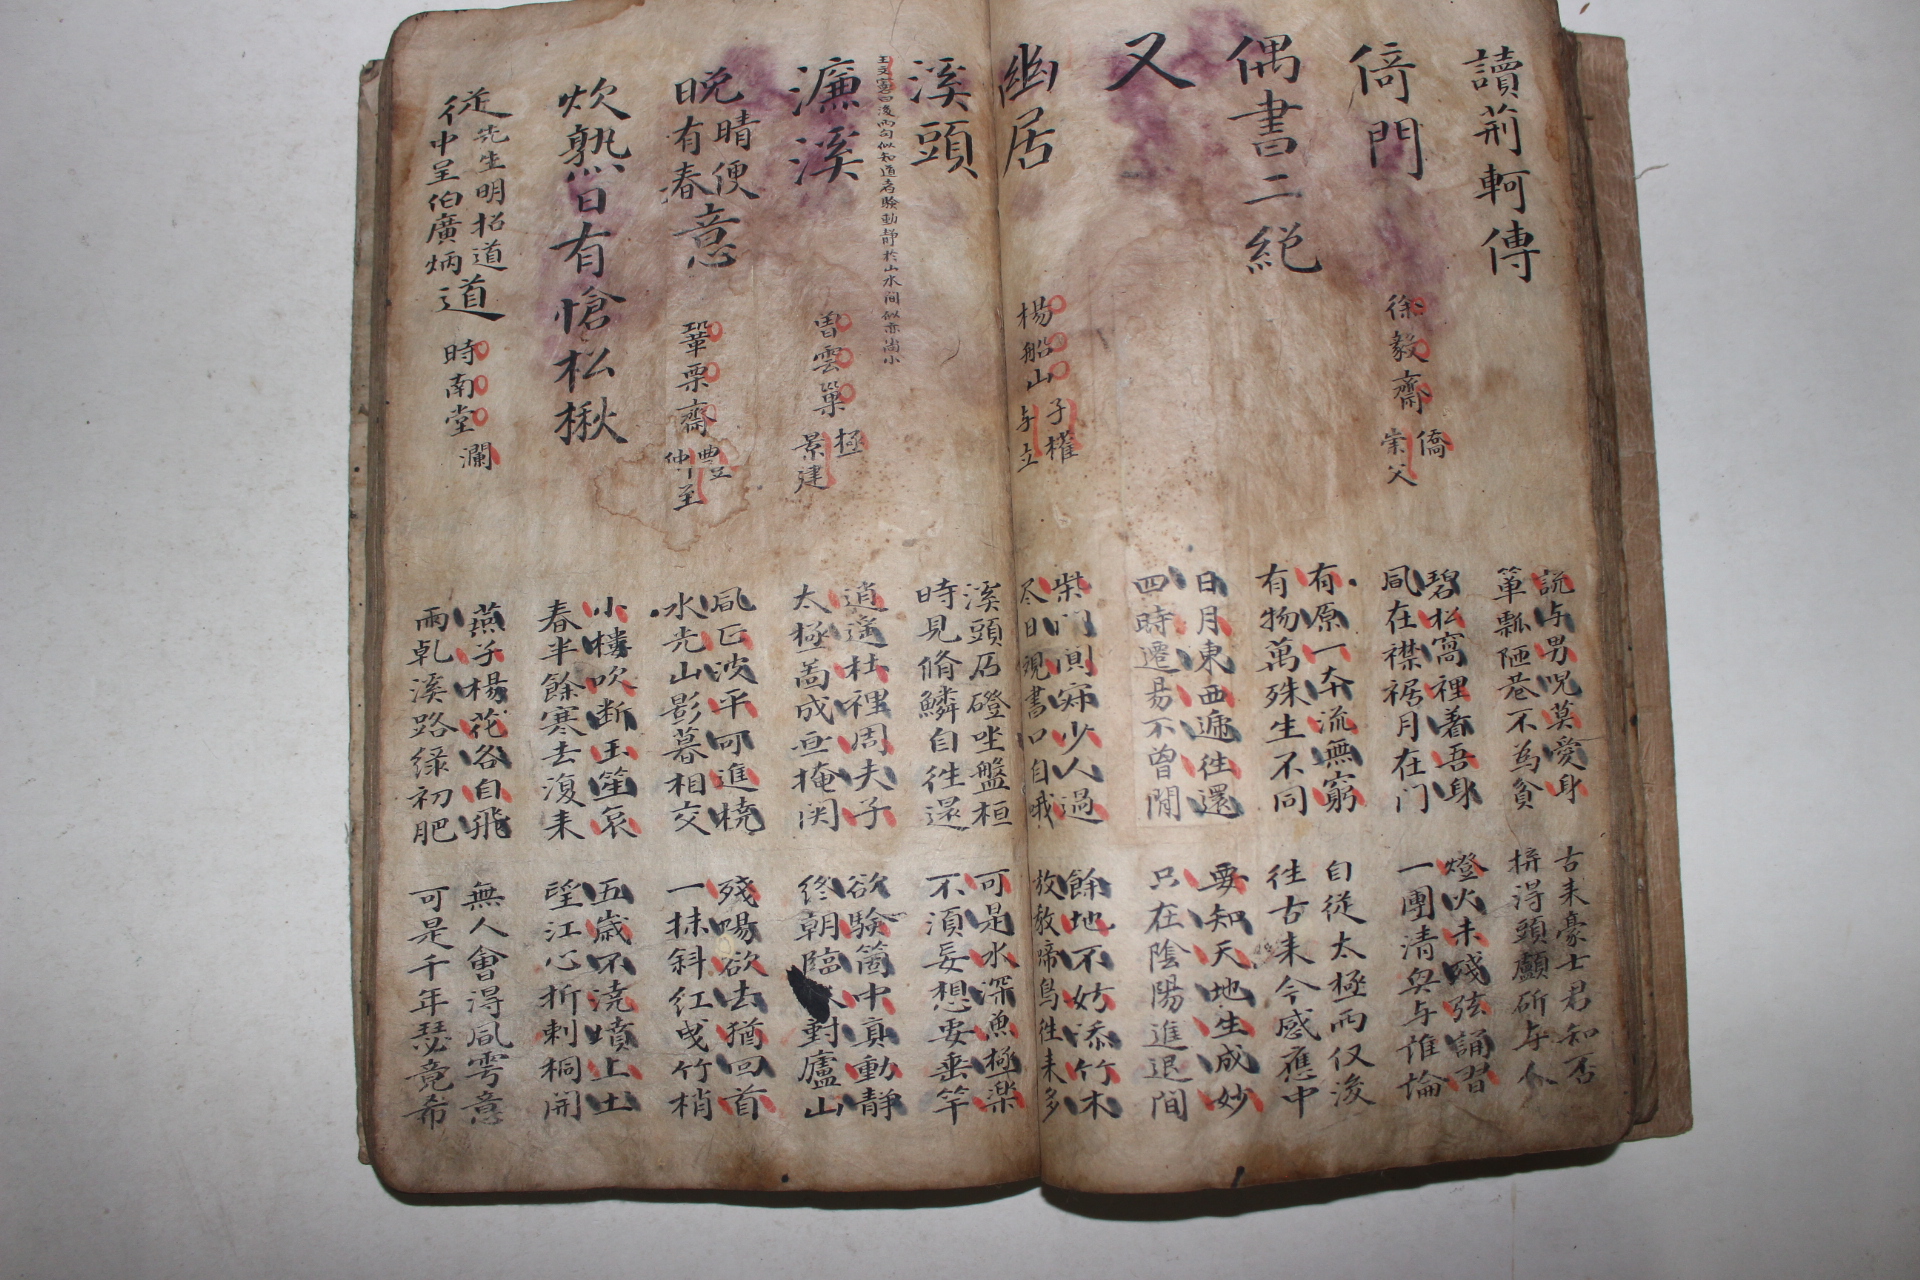 讀荊軻傳
說与男児莫愛身
簞瓢陋巷不為貧
古来豪士君知否
拚得頭顱斫与人
倚門
徐毅齋
僑
崇父
碧松窩裡着吾身
風在襟裾月在门
燈火未殘弦誦習
一團清興与誰論
偶書二絕
有原一本流無窮
有物萬殊生不同
自從太極兩仪後
往古来今感應中
又
日月東西遞往還
四時遷易不曾閒
要知天地生成妙
只在陰陽進退間
幽居
楊船山
子權
与立
柴门闃寂少人過
尽日覌書口自哦
餘地不妨添竹木
放教啼鳥往来多
溪頭
溪頭石磴坐盤桓
時見脩鱗自往還
可是水深魚極楽
不須妄想要垂竿
王文憲曰後兩句似知道者驗動静於山水间似亦尚小
濂溪
曽雲巢
極
景建
逍遥杜裡周夫子
太極啚成亟掩関
欲驗箇中真動静
終朝臨水對廬山
晚晴便有春意
鞏栗齋
豊
仲至
風匚波平可進橈
水光山影暮相交
殘陽欲去猶回首
一抹斜红曵竹梢
炊熟日有愴松楸
小樓吹断玉笙哀
春半餘寒去復来
五歲不澆墳上土
望江心折刺桐開
從先生明招道中呈伯廣炳道
時南堂
瀾
燕子楊花各自飛
雨乹溪路緑初肥
無人會得風雩意
可是千年瑟竟希